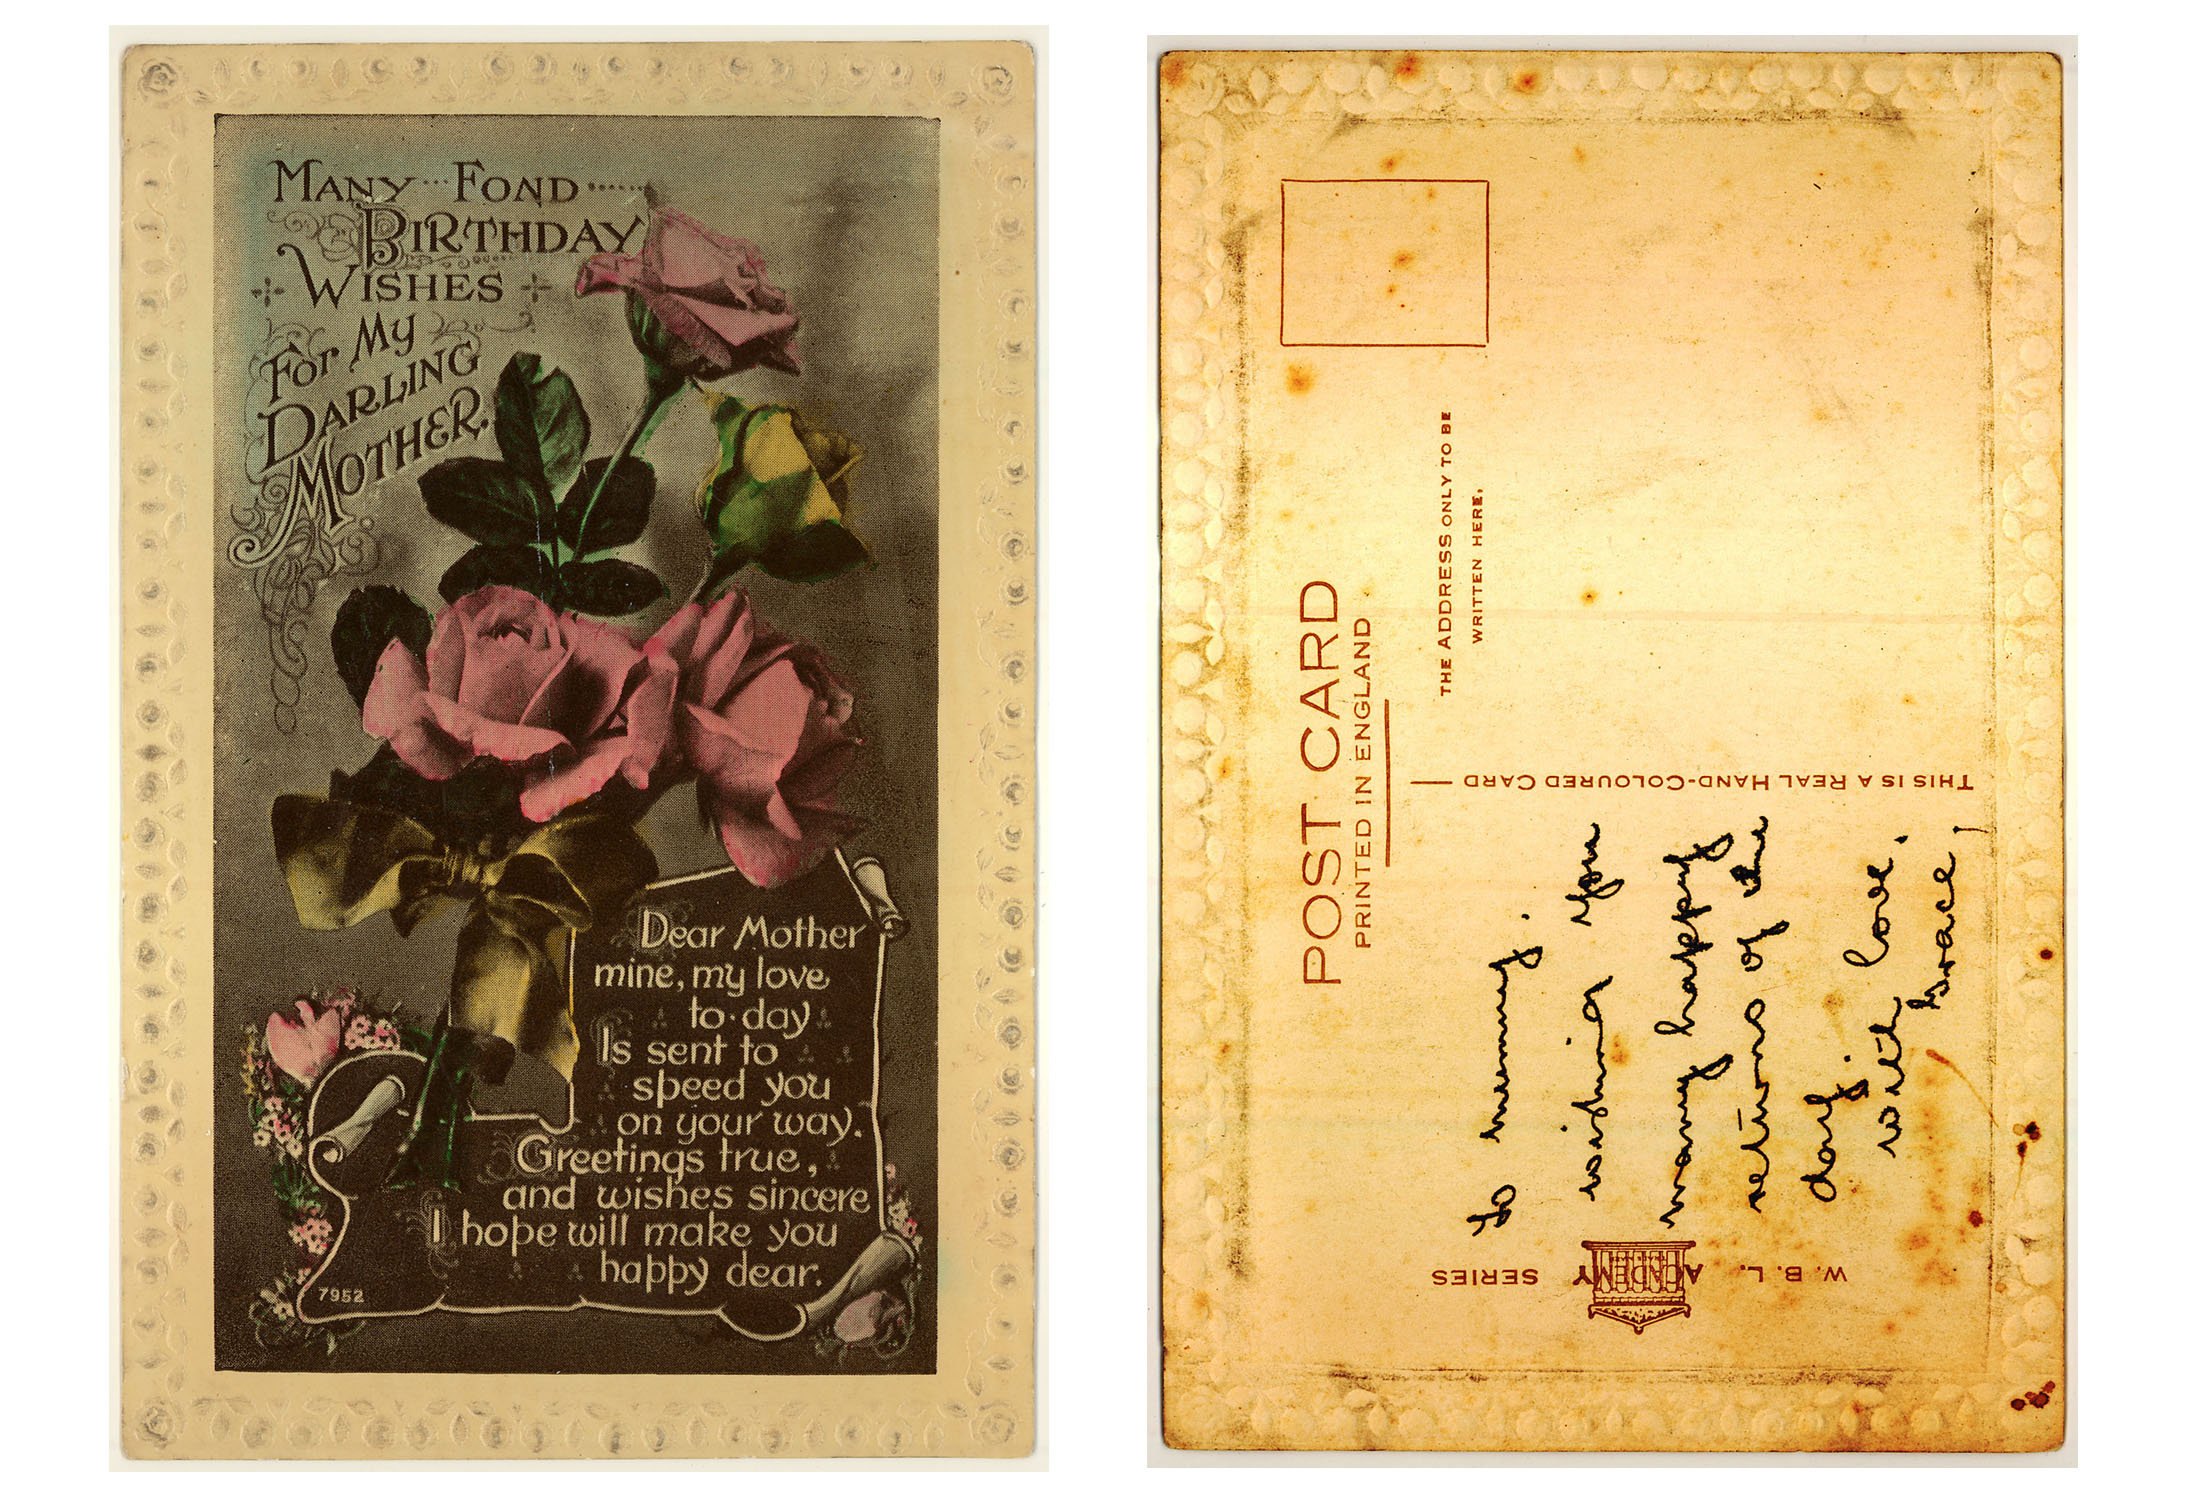 MANY FOND
BIRTHDAY
WISHES
For My
DARLING
MOTHER.
Dear Mother
mine, my love
to-day
Is sent to
speed you
on your way.
Greetings true,
and wishes sincere
I hope will make you
happy dear.
7952
POST CARD
PRINTED IN ENGLAND
THE ADDRESS ONLY TO BE
WRITTEN HERE.
THIS IS A REAL HAND-COLOURED CARD
to mummy.
wishing you
many happy
returns of the
day.
with love.
Grace,
W. B. L. ACADEMY SERIES